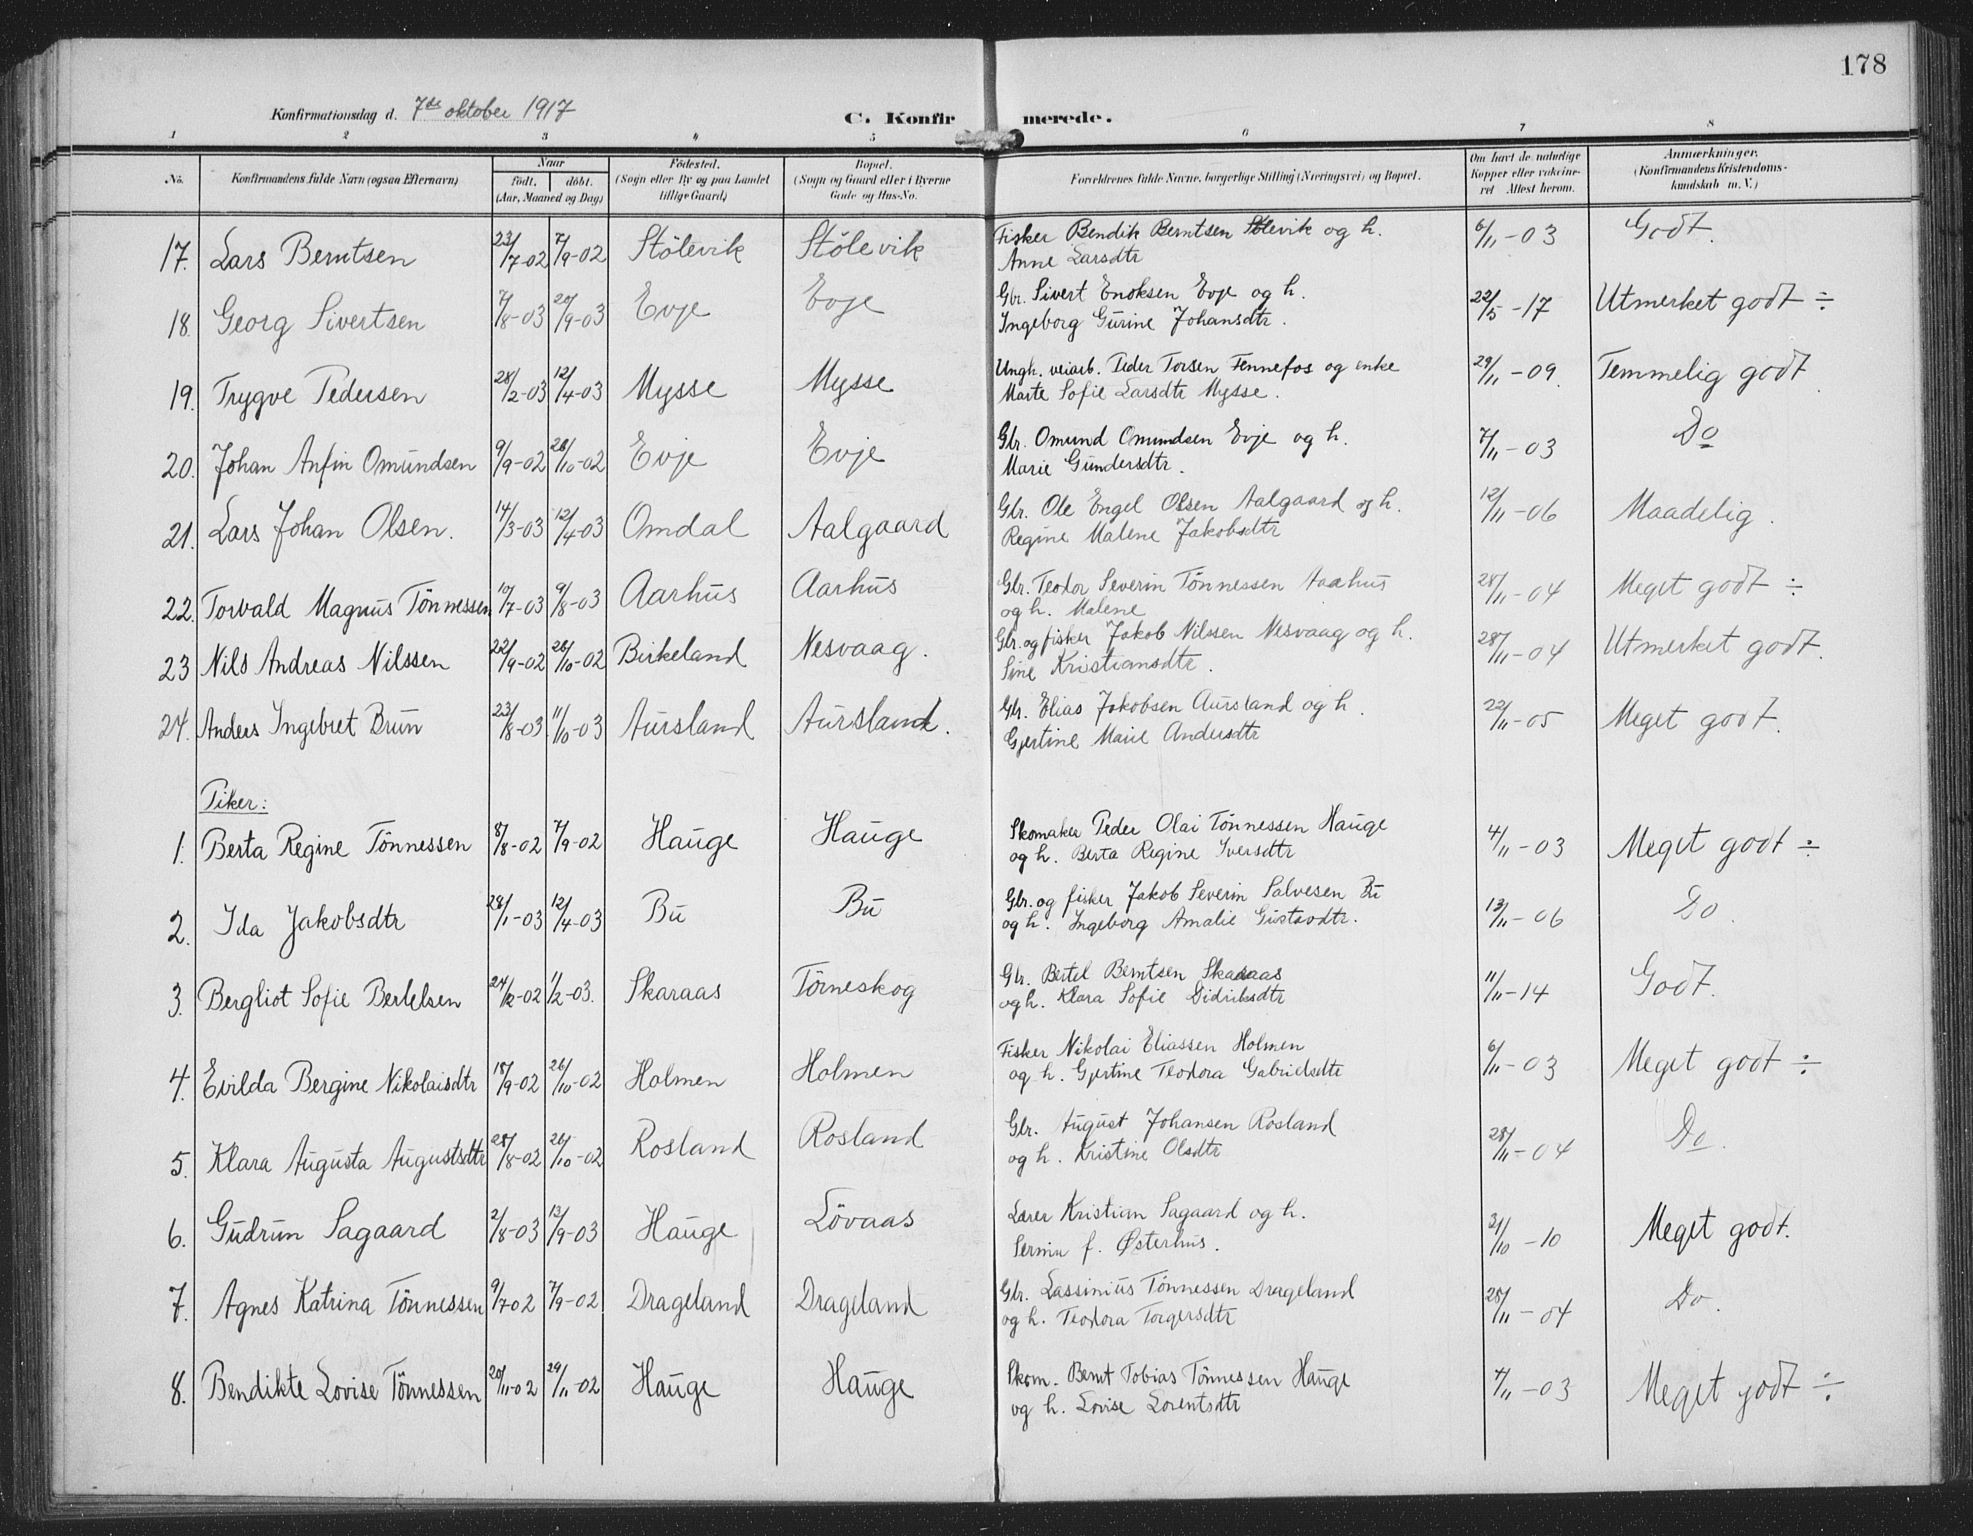 178
Konfirmationsdag d. 7de oktober 1917
C. Konfirmerede.
1 2 3 4 5 6 7 8
No. Konfirmandens fulde Navn (ogsaa Efternavn) Naar født. døbt. (Aar, Maaned og Dag) Fødested. (Sogn eller By og paa Landet tillige Gaard) Bopæl. (Sogn og Gaard eller i Byerne Gade og Hus-No. Forældrenes fulde Navne, borgerlige Stilling (Næringsvei) og Bopæl. Om havt de naturlige Kopper eller vakcineret Attest herom. Anmærkninger. (Konfirmandens Kristendomskundskab m.V.)
17. Lars Berntsen 23/7-02 7/9-02 Stölevik Stölevik Fisker Bendik Berntsen Stölevik og h. 6/11-03 Godt.
Anne Larsdtr
18. Georg Sivertsen 7/8-03 20/9-03 Evje Evje Gbr. Sivert Enoksen Evje og h. 22/5-17 Utmerket godt ÷
Ingeborg Gurine Johansdtr.
19. Trygve Pedersen 28/2-03 12/4-03 Mysse Mysse Ungk. veiarb. Peder Torsen Fennefos og enke 29/11-09. Temmelig godt
Marte Sofie Larsdtr Mysse.
20. Johan Anfin Omundsen 9/9-02 26/10-02 Evje Evje Gbr. Omund Omundsen Evje og h. 7/11-03 Do
Marie Gundersdtr.
21. Lars Johan Olsen. 14/3-03 12/4-03 Omdal Aalgaard Gbr. Ole Engel Olsen Aalgaard og h. 12/11-06 Maadelig.
Regine Malene Jakobsdtr
22. Torvald Magnus Tönnessen 10/7-03 9/8-03 Aarhus Aarhus Gbr. Teodor Severin Tönnessen Aarhus 28/11-04 Meget godt ÷
og h. Malene
23 Nils Andreas Nilssen 22/9-02 26/10-02 Birkeland Nesvaag. Gbr. og fisker Jakob Nilssen Nesvaag og h. 28/11-04 Utmerket godt.
Sine Kristiansdtr.
24. Anders Ingebret Brun 23/8-03 11/10-03 Aursland Aursland. Gbr. Elias Jakobsen Aursland og h. 22/11-05 Meget godt.
Gjertine Marie Andersdtr
Piker:
1. Berta Regine Tönnessen 8/8-02 7/9-02 Hauge Hauge Skomaker Peder Olai Tönnessen Hauge 4/11-03 Meget godt ÷
og h. Berta Regine Iversdtr
2. Ida Jakobsdtr 28/1-03 12/4-03 Bu Bu Gbr. og fisker Jakob Severin Salvesen Bu 13/11-06 Do.
og h. Ingeborg Amalie Gustavdtr.
3. Bergliot Sofie Bertelsen 24/12-02 1/2-03. Skaraas Törneskog Gbr. Bertel Berntsen Skaraas 11/11-14 Godt.
og h. Klara Sofie Didriksdtr
4. Evilda Bergine Nikolaisdtr 18/9-02 26/10-02 Holmen Holmen Fisker Nikolai Eliassen Holmen 6/11-03 Meget godt ÷
og h. Gjertine Teodora Gabrielsdtr
5. Klara Augusta Augustsdtr 28/8-02 26/10-02 Rosland Rosland Gbr. August Johansen Rosland 28/11-04 Do.
og h. Kristine Olsdtr
6. Gudrun Sagaard 2/8-03 13/9-03 Hauge Lövaas Lærer Kristian Sagaard og h. 3/10-10 Meget godt.
f. Østerhus.
7. Agnes Katrina Tönnessen 9/7-02 7/9-02 Drageland Drageland Gbr. Lassinius Tönnessen Drageland 28/11-04 Do.
og h. Teodora Torgersdtr
8. Bendikte Lovise Tönnessen 20/11-02 29/11-02 Hauge Hauge Skom. Bernt Tobias Tönnessen Hauge 4/11-03 Meget godt ÷
og h. Lovise Lorentsdtr